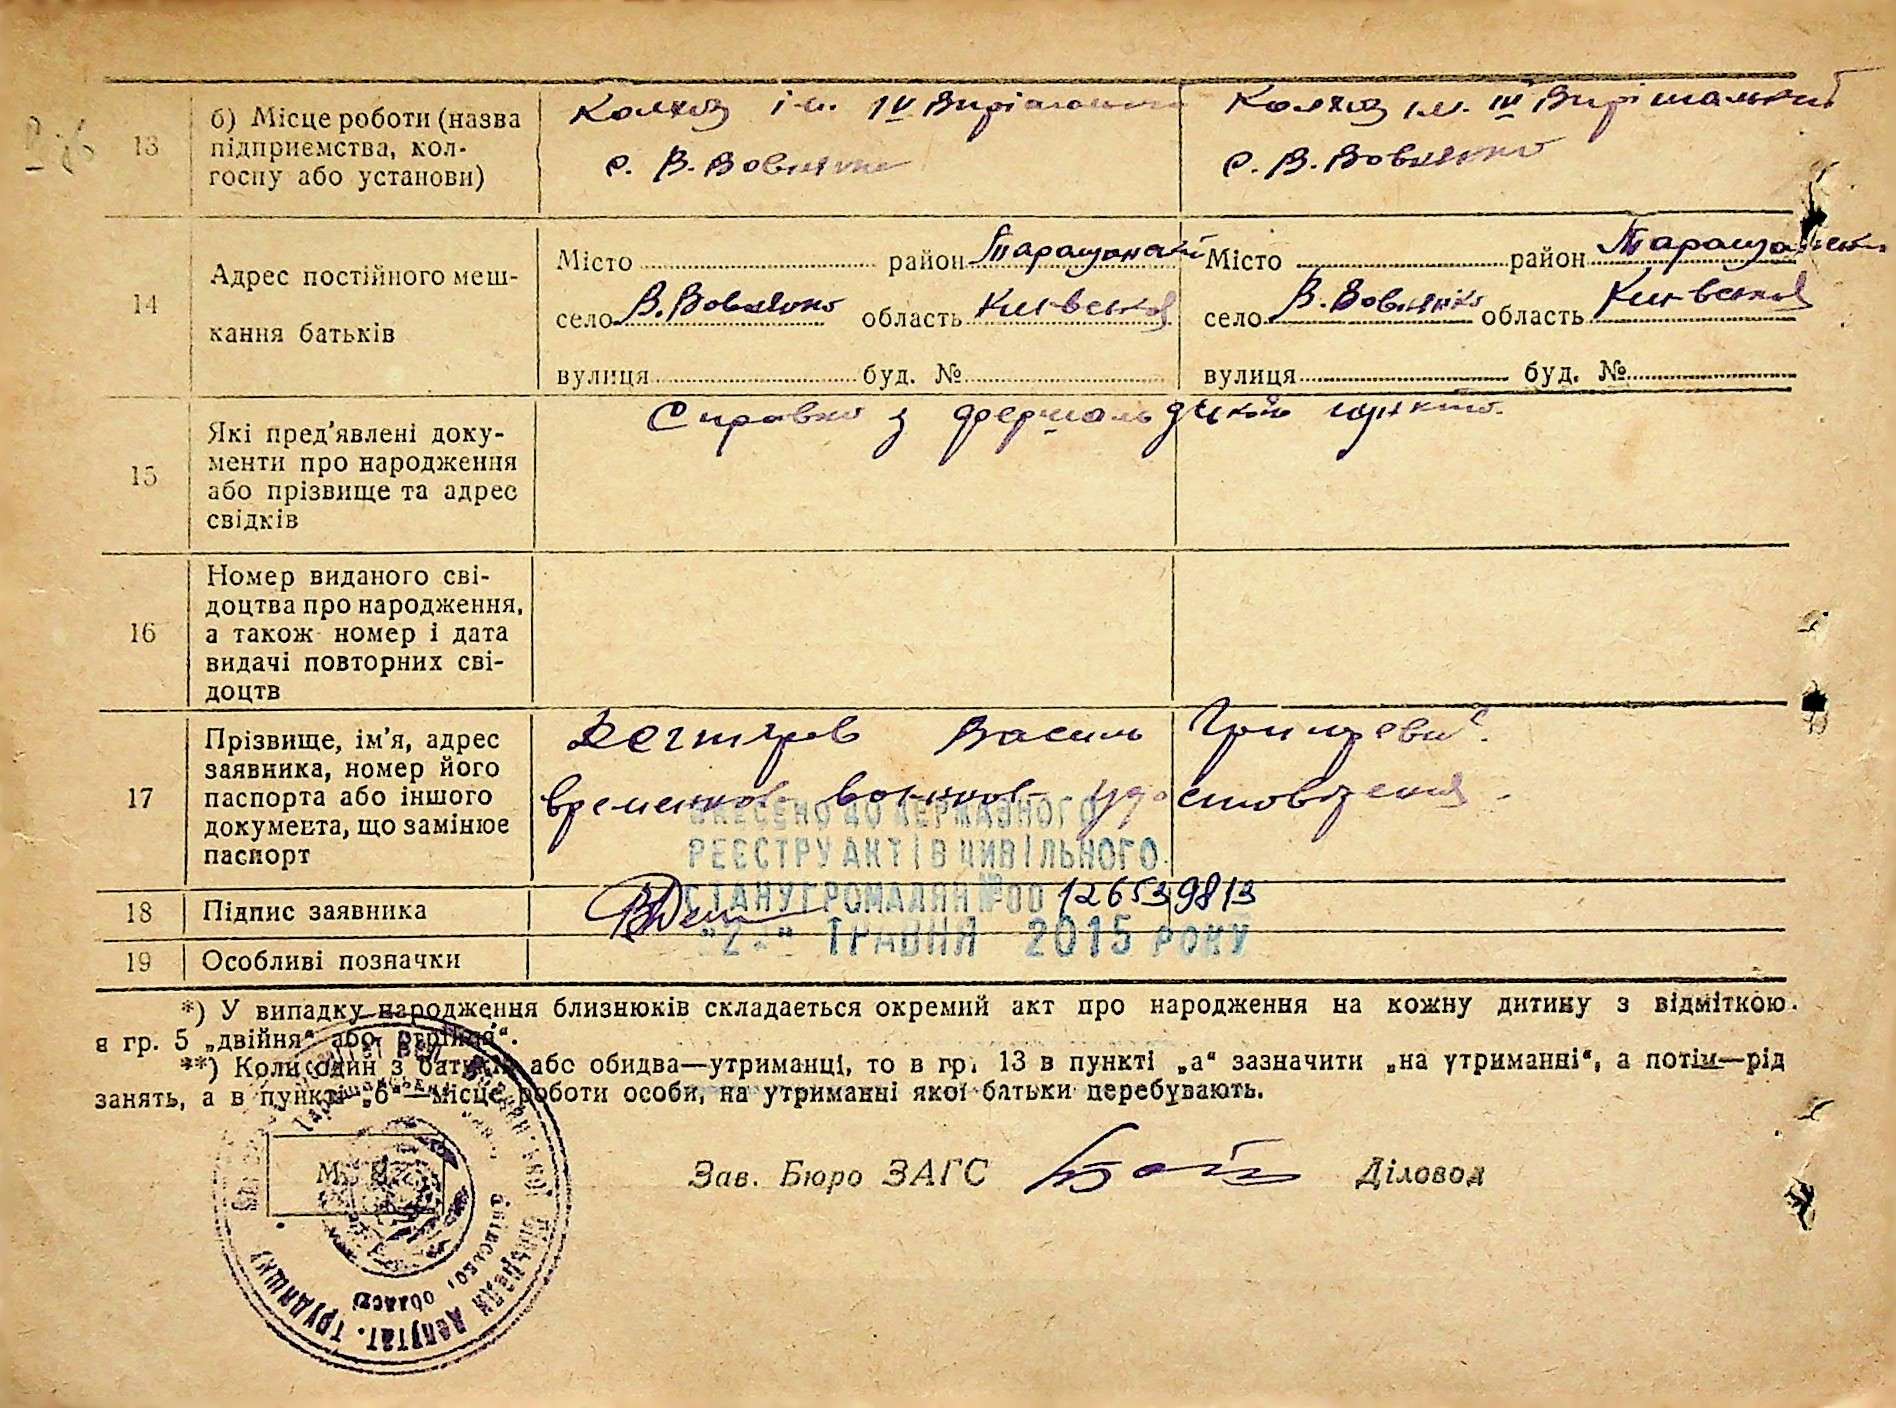 13
б) Місце роботи (назва
підприємства, кол-
госпу або установи)
Колхоз ім. IV Вирішальний
с. В. Вовнянко
Колхоз ім. IV Вирішальний
с. В. Вовнянко
14
Адрес постійного меш-
кання батьків
Місто район Таращанский
село В. Вовнянко область Київська
вулиця буд. №
Місто район Таращанский
село В. Вовнянко область Київська
вулиця буд. №
15
Які пред'явлені доку-
менти про народження
або прізвище та адрес
свідків
Справка з фершальдського пункта.
16
Номер виданого сві-
доцтва про народження,
а також номер і дата
видачі повторних сві-
доцтв
17
Прізвище, ім'я, адрес
заявника, номер його
паспорта або іншого
документа, що замінює
паспорт
Дегтярев Василь Григоревич.
временное военное удостоверения.
ВНЕСЕНО ДО ДЕРЖАВНОГО
РЕЄСТРУ АКТІВ ЦИВІЛЬНОГО
СТАНУ ГРОМАДЯН №00 126539813
ТРАВНЯ 2015 РОКУ
18
Підпис заявника
19
Особливі позначки
*) У випадку народження близнюків складається окремий акт про народження на кожну дитину з відміткою
в гр. 5 „двійня“ або „трійня“.
**) Коли один з батьків або обидва—утриманці, то в гр. 13 в пункті „а“ зазначити „на утриманні“, а потім—рід
занять, а в пункті „б“—місце роботи особи, на утриманні якої батьки перебувають.
М. П.
Зав. Бюро ЗАГС
Діловод
депутат. трудящих
Київської області